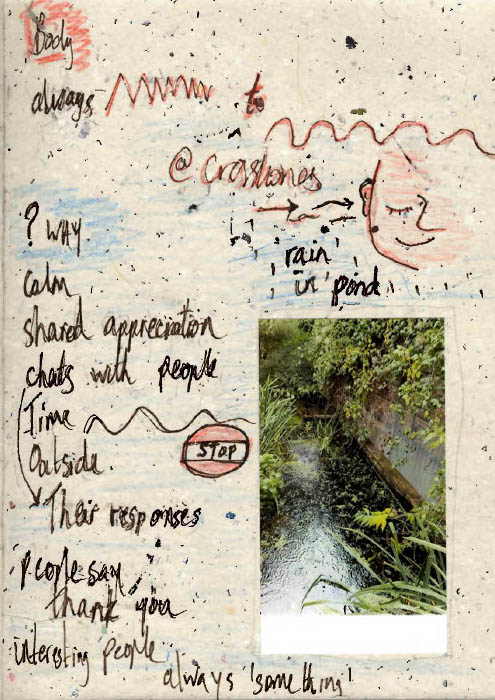 Body
always to
@ crasbones
? WAY
rain
in pond
calm
shared appreciation
chats with people
Time
Outside
STOP
Their responses
people say
thank you
interesting people
always 'something'